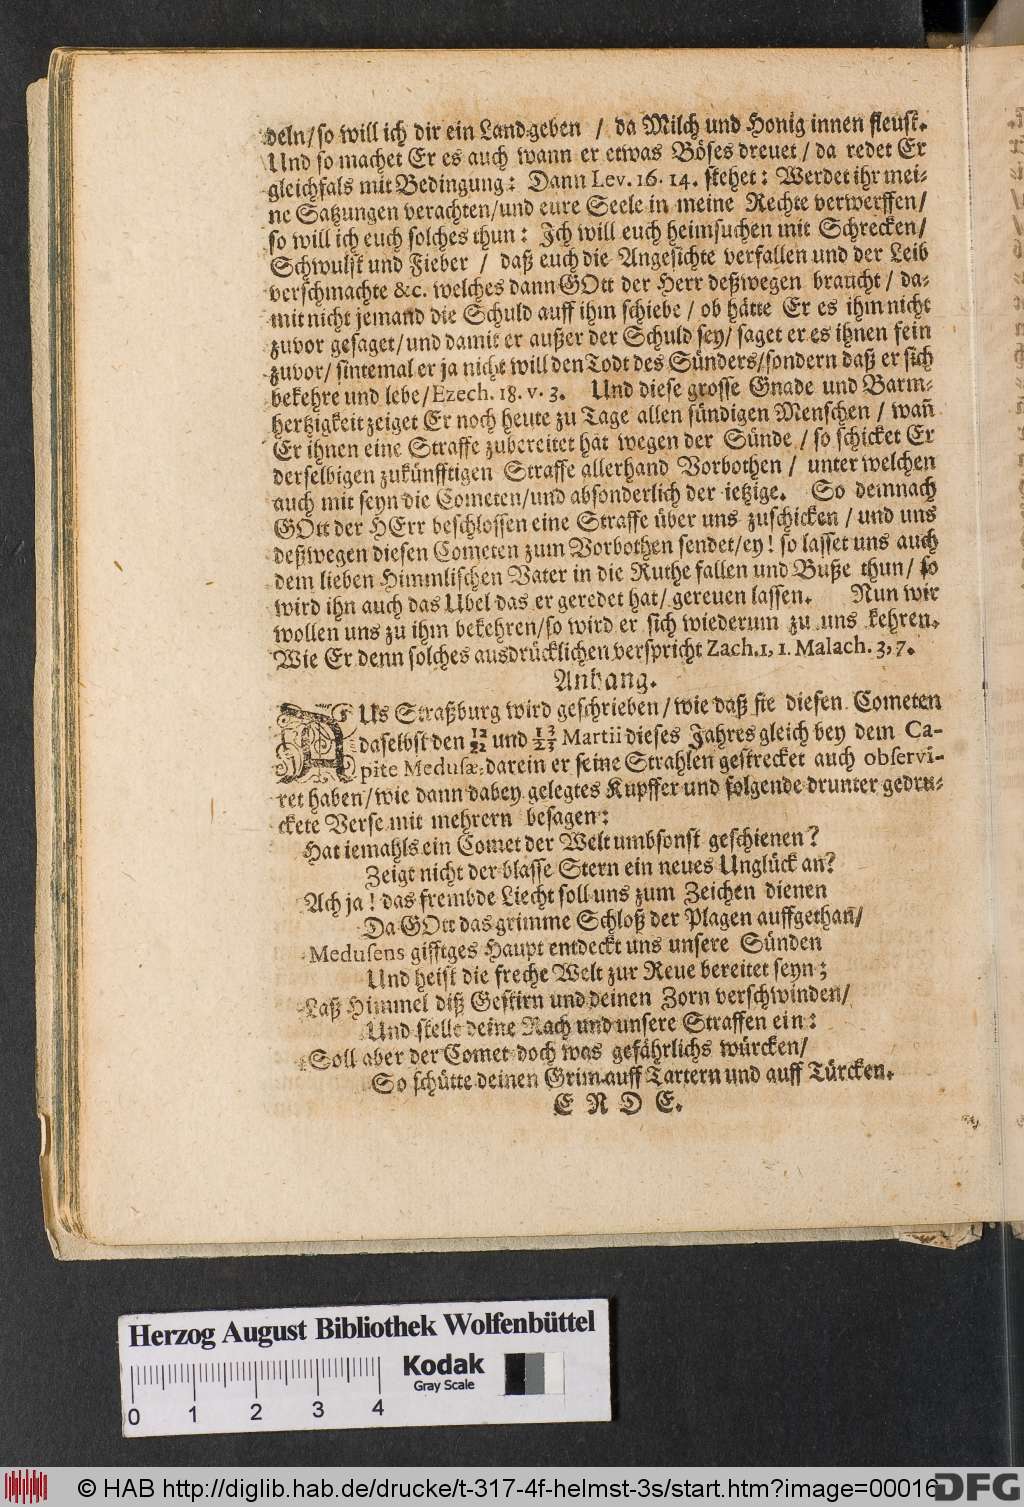 deln/ so will ich dir ein Land geben / da Milch und Honig innen fleust.
Und so machet Er es auch wann er etwas Böses dreuet / da redet Er
gleichfals mit Bedingung: Dann Lev. 16. 14. stehet: Werdet ihr mei-
ne Satzungen verachten/ und eure Seele in meine Rechte verwerffen/
so will ich euch solches thun: Ich will euch heimsuchen mit Schrecken/
Schwulst und Fieber / daß euch die Angesichte verfallen und der Leib
verschmachte &c. welches dann GOtt der Herr deßwegen braucht / da-
mit nicht jemand die Schuld auff ihm schiebe / ob hätte Er es ihm nicht
zuvor gesaget/ und damit er außer der Schuld sey/ saget er es ihnen fein
zuvor/ sintemal er ja nicht will den Todt des Sünders/ sondern daß er sich
bekehre und lebe/ Ezech. 18. v. 3. Und diese grosse Gnade und Barm-
hertzigkeit zeiget Er noch heute zu Tage allen sündigen Menschen / wañ
Er ihnen eine Straffe zubereitet hat wegen der Sünde / so schicket Er
derselbigen zukünfftigen Straffe allerhand Vorbothen / unter welchen
auch mit seyn die Cometen/ und absonderlich der ietzige. So demnach
GOtt der HErr beschlossen eine Straffe über uns zuschicken / und uns
deßwegen diesen Cometen zum Vorbothen sendet/ ey! so lasset uns auch
dem lieben Himmlischen Vater in die Ruthe fallen und Buße thun/ so
wird ihn auch das Ubel das er geredet hat/ gereuen lassen. Nun wir
wollen uns zu ihm bekehren/ so wird er sich wiederum zu uns kehren.
Wie Er denn solches ausdrücklichen verspricht Zach. 1, 1. Malach. 3, 7.
Anhang.
AUs Straßburg wird geschrieben / wie daß sie diesen Cometen
daselbst den 12/22 und 13/23 Martii dieses Jahres gleich bey dem Ca-
pite Medusæ, darein er seine Strahlen gestrecket auch observi-
ret haben/ wie dann dabey gelegtes Kupffer und folgende drunter gedru-
ckete Verse mit mehrern besagen:
Hat iemahls ein Comet der Welt umbsonst geschienen?
Zeigt nicht der blasse Stern ein neues Unglück an?
Ach ja! das frembde Liecht soll uns zum Zeichen dienen
Da GOtt das grimme Schloß der Plagen auffgethan/
Medusens gifftges Haupt entdeckt uns unsere Sünden
Und heist die freche Welt zur Reue bereitet seyn;
Laß Himmel diß Gestirn und deinen Zorn verschwinden/
Und stelle deine Rach und unsere Straffen ein:
Soll aber der Comet doch was gefährlichs würcken/
So schütte deinen Grim auff Tartern und auff Türcken.
E N D E.
Herzog August Bibliothek Wolfenbüttel
Kodak
Gray Scale
0 1 2 3 4
© HAB http://diglib.hab.de/drucke/t-317-4f-helmst-3s/start.htm?image=00016
DFG